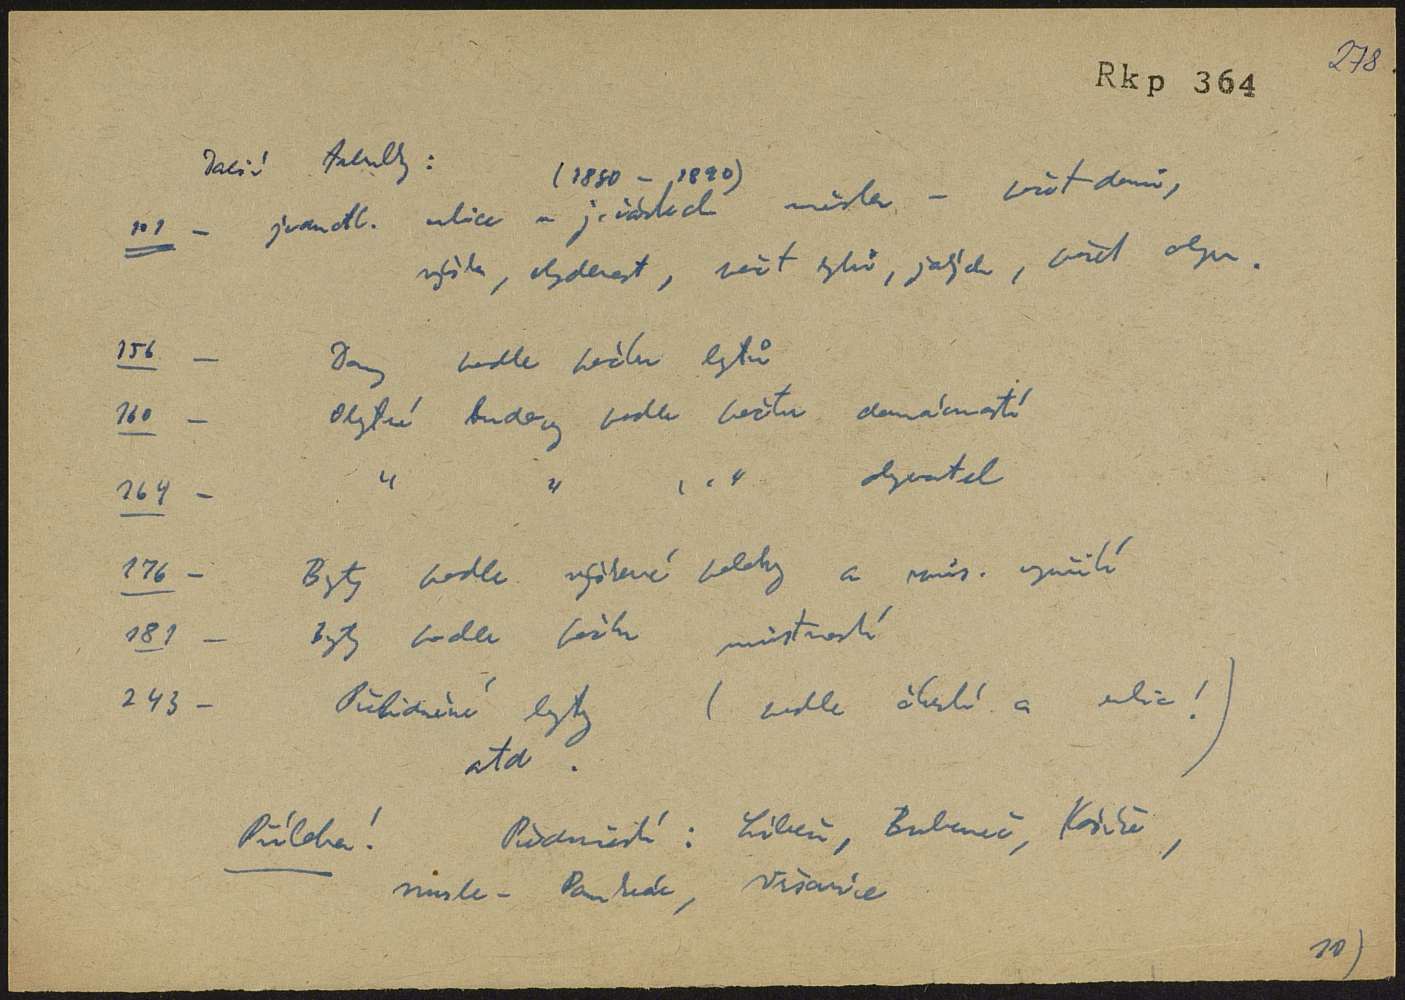 278
Rkp 364
Další tabulky:
(1880 – 1890)
101 – jednotl. ulice v j. částech města – počet domů,
výška, obydlenost, počet bytů, jakých, počet obyv.
156 – Domy podle počtu bytů
160 – Obytné budovy podle počtu domácností
164 – " " " " obyvatel
176 – Byty podle výškové polohy a způs. využití
181 – Byty podle počtu místností
243 – Přelidněné byty (podle částí a ulic!)
atd.
Příloha! Předměstí: Libeň, Bubeneč, Košíře,
Nusle – Pankrác, Vršovice
10)